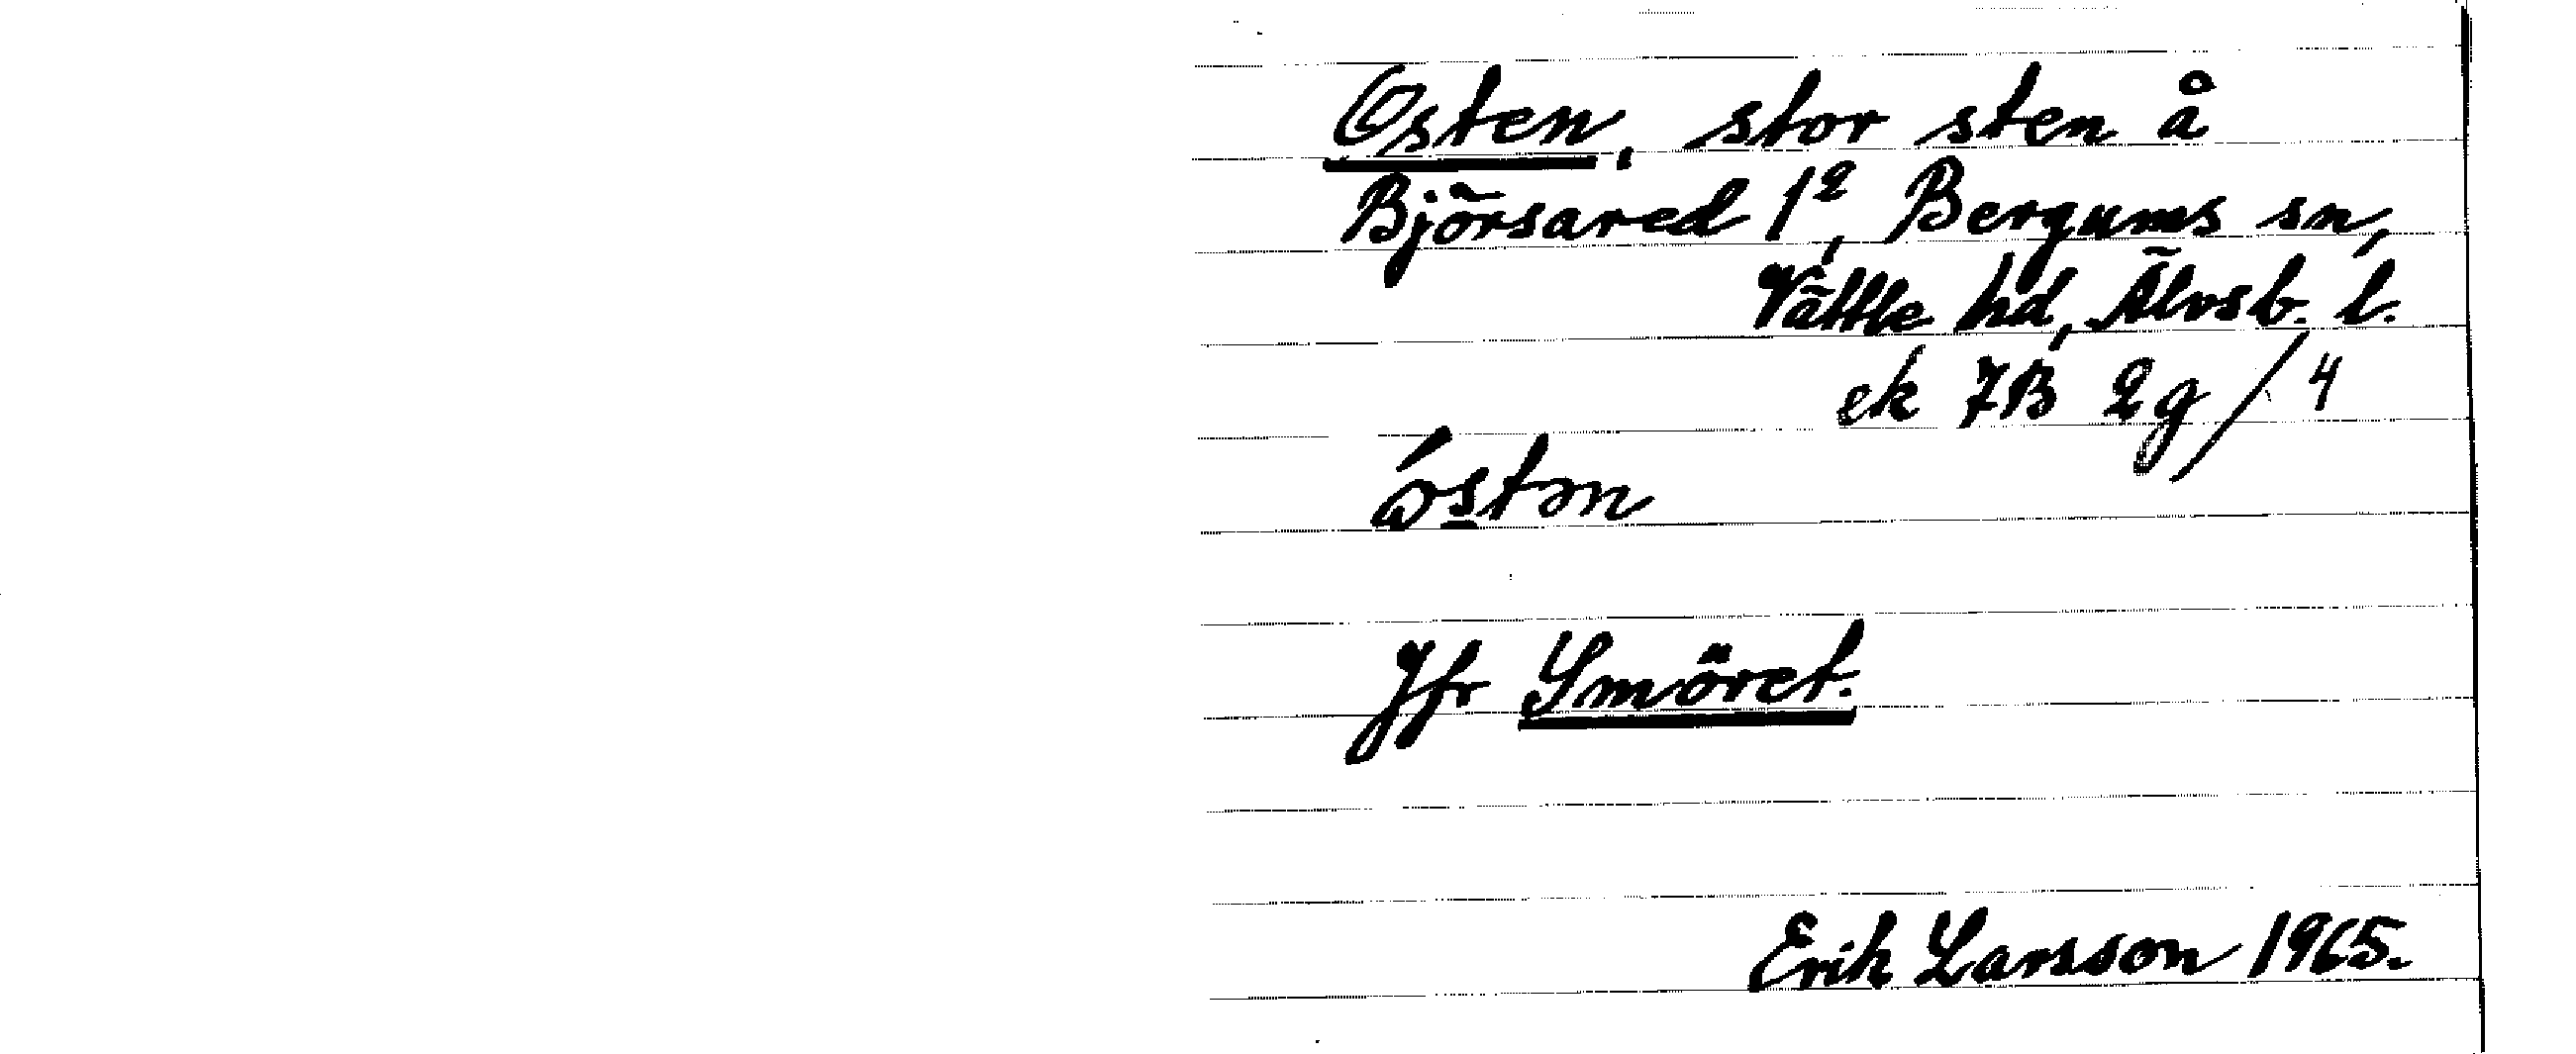 Osten, stor sten å
Björsared 1², Bergums sn,
Vättle hd, Älvsb. l.
ek 7B 2g/4
óstən
Jfr Smöret.
Erik Larsson 1965.